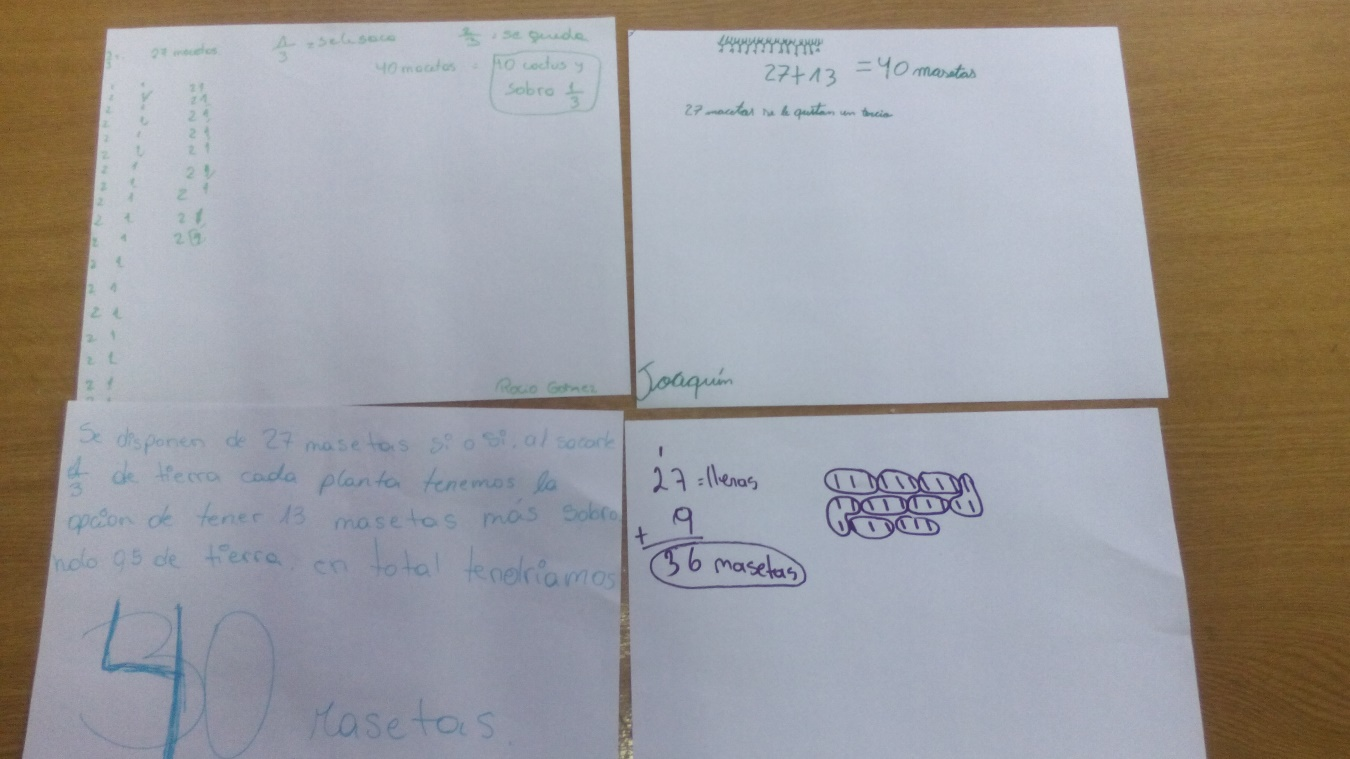 27 macetas.
1/3 = se le saca
2/3 = se queda
40 macetas = 40 cactus y
sobro 1/3
2 1
2 1
2 1
2 1
2 1
2 1
2 1
2 1
2 1
Rocio Gomez
27+13 = 40 masetas
27 macetas se le quitan un tercio
Joaquín
Se disponen de 27 masetas si o si. al sacarle
1/3 de tierra cada planta tenemos la
opcion de tener 13 masetas más sobra
ndo 0,5 de tierra. en total tendríamos
40
Masetas
1
27 = llenas
+ 9
36 masetas